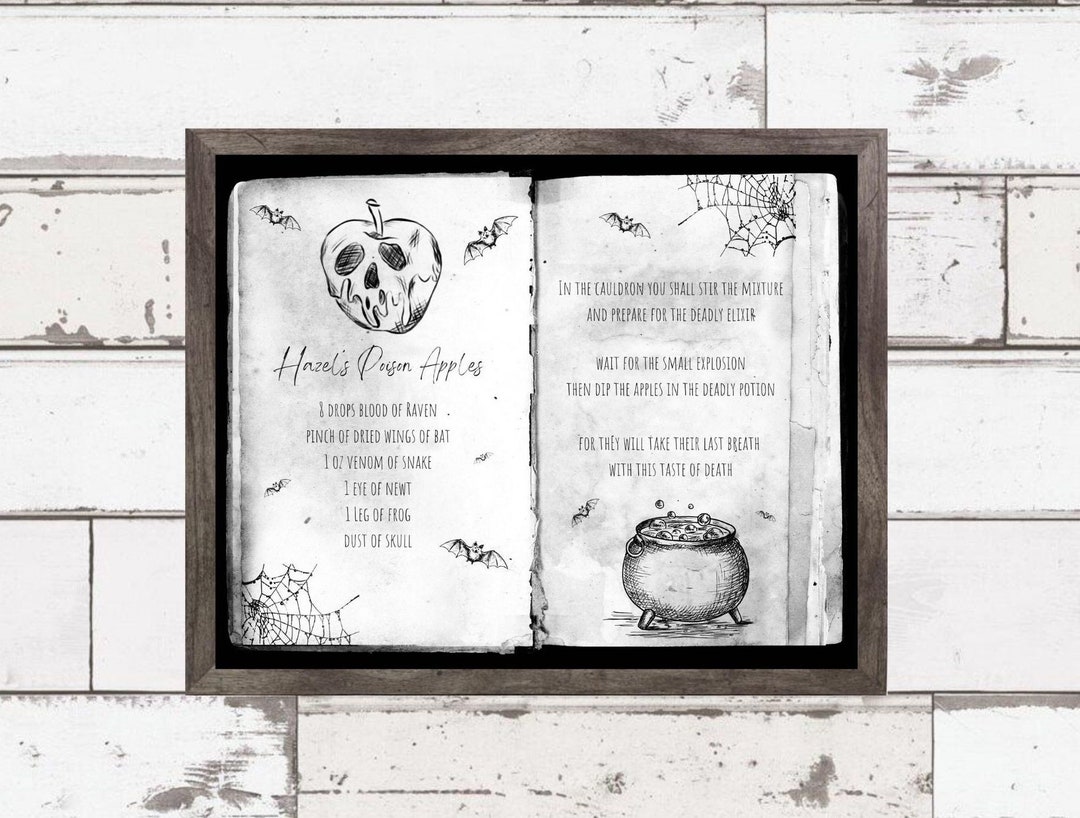 Hazel's Poison Apples
8 drops blood of Raven
pinch of dried wings of bat
1 oz venom of snake
1 eye of newt
1 Leg of frog
dust of skull
In the cauldron you shall stir the mixture
and prepare for the deadly elixir
wait for the small explosion
then dip the apples in the deadly potion
for they will take their last breath
with this taste of death